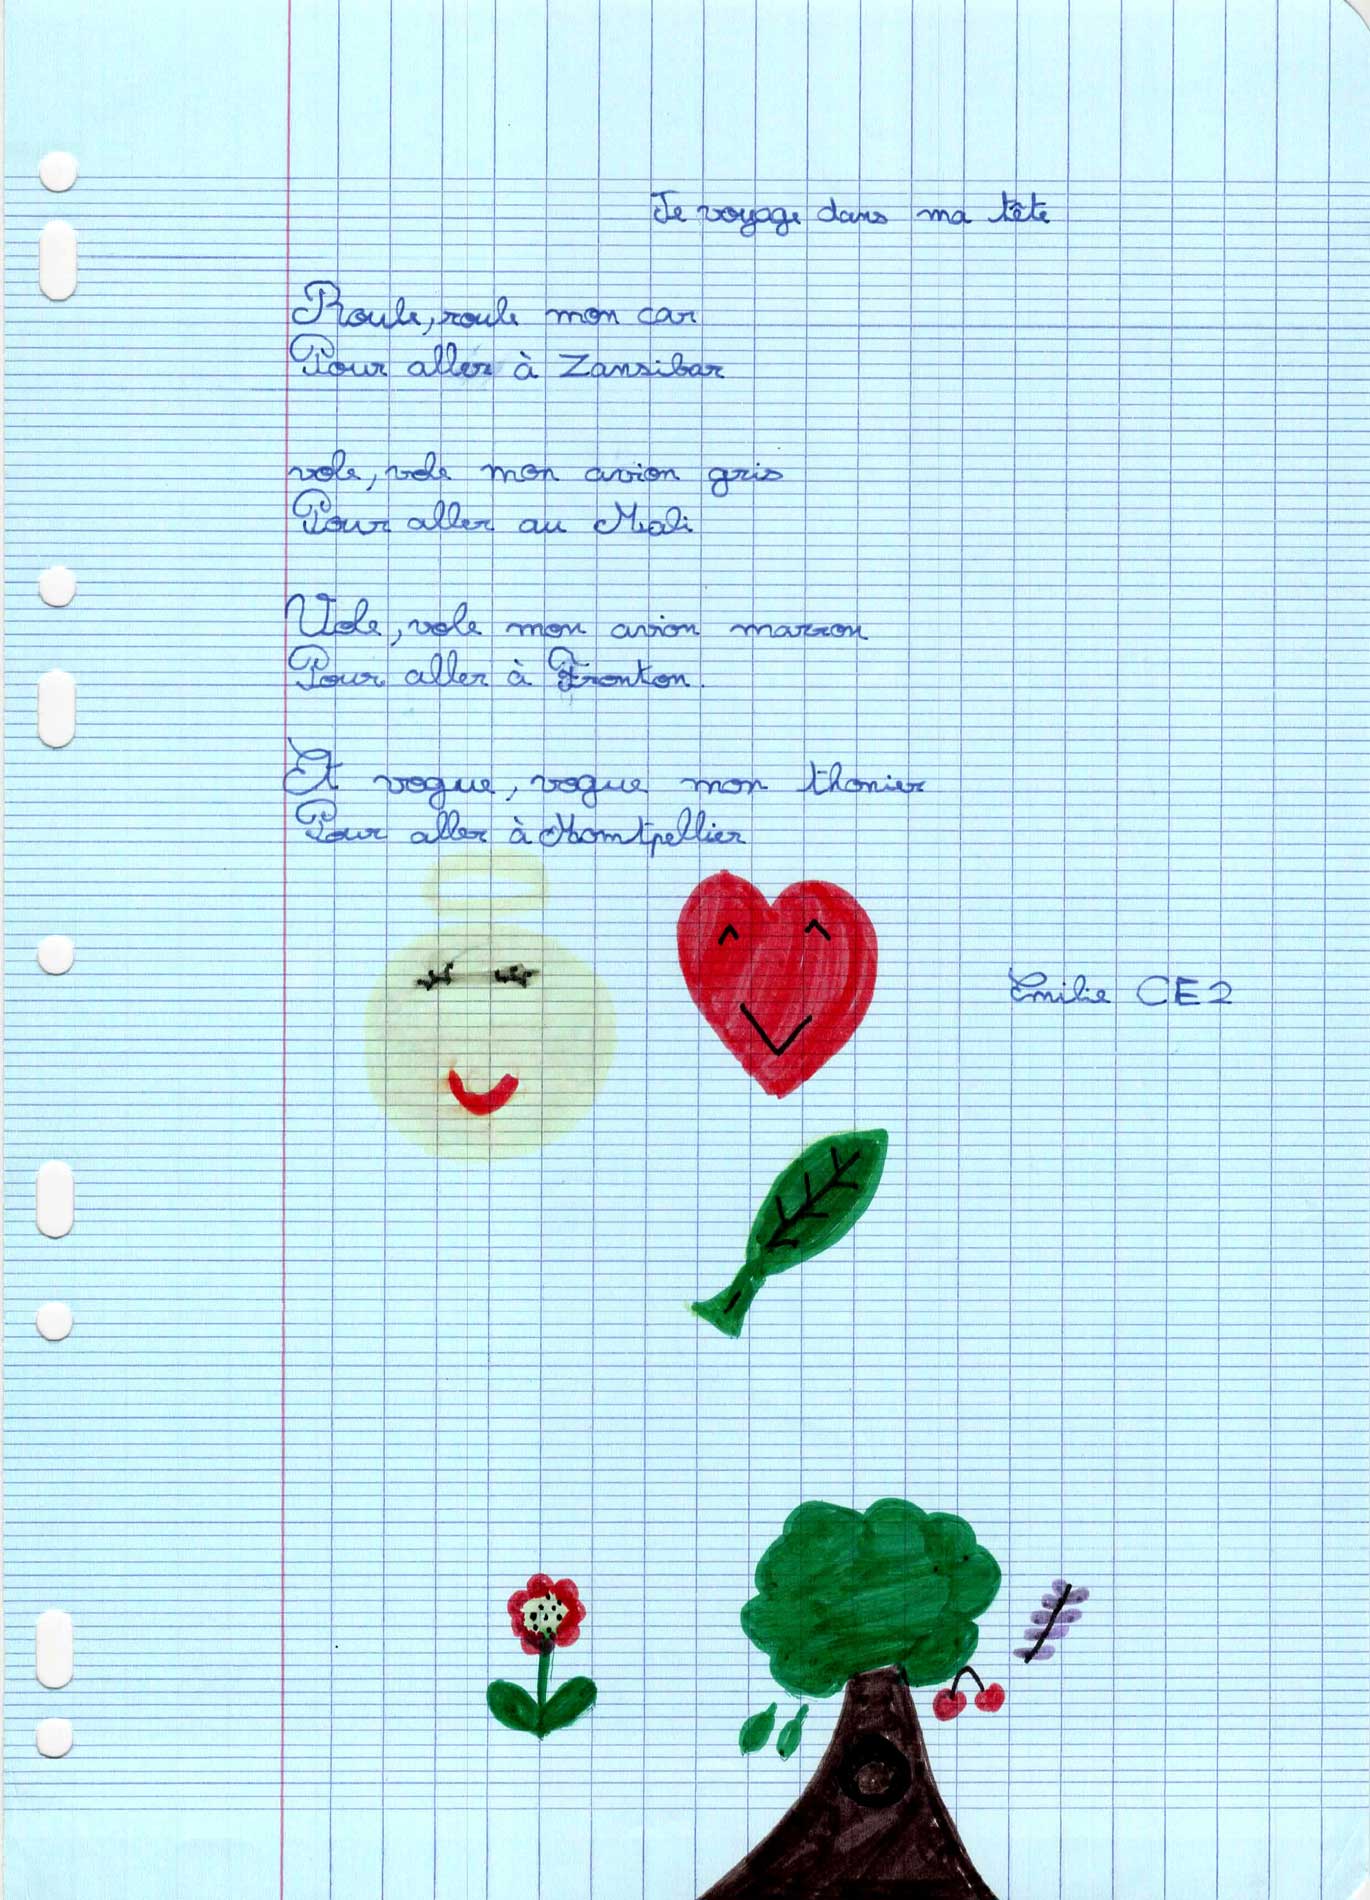 Je voyage dans ma tête
Roule, roule mon car
Pour aller à Zansibar
vole, vole mon avion gris
Pour aller au Mali
Vole, vole mon avion marron
Pour aller à Fronton.
Et vogue, vogue mon thonier
Pour aller à Momtpellier
Emilie CE2